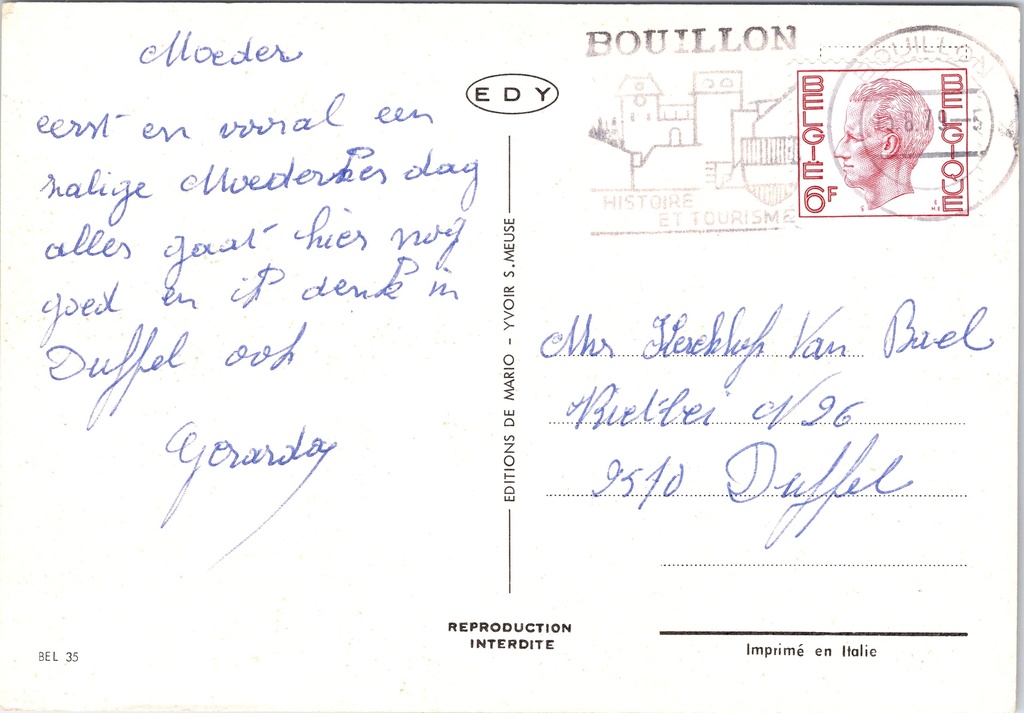 Moeder
eerst en vooral een
zalige Moederkes dag
alles gaat hier nog
goed en ik denk in
Duffel ook
Gerarda
EDY
EDITIONS DE MARIO - YVOIR S. MEUSE
REPRODUCTION
INTERDITE
BEL 35
BOUILLON
HISTOIRE
ET TOURISME
BOUILLON
8.79
BELGIE 6F
BELGIQUE
Mr Kerckhof Van Bael
Rietlei N 26
2570 Duffel
Imprimé en Italie